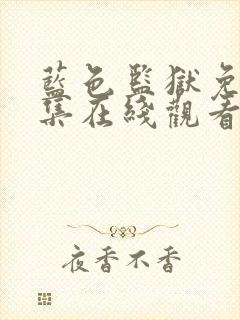 藍色監獄免
集在綫觀看
夜香不香